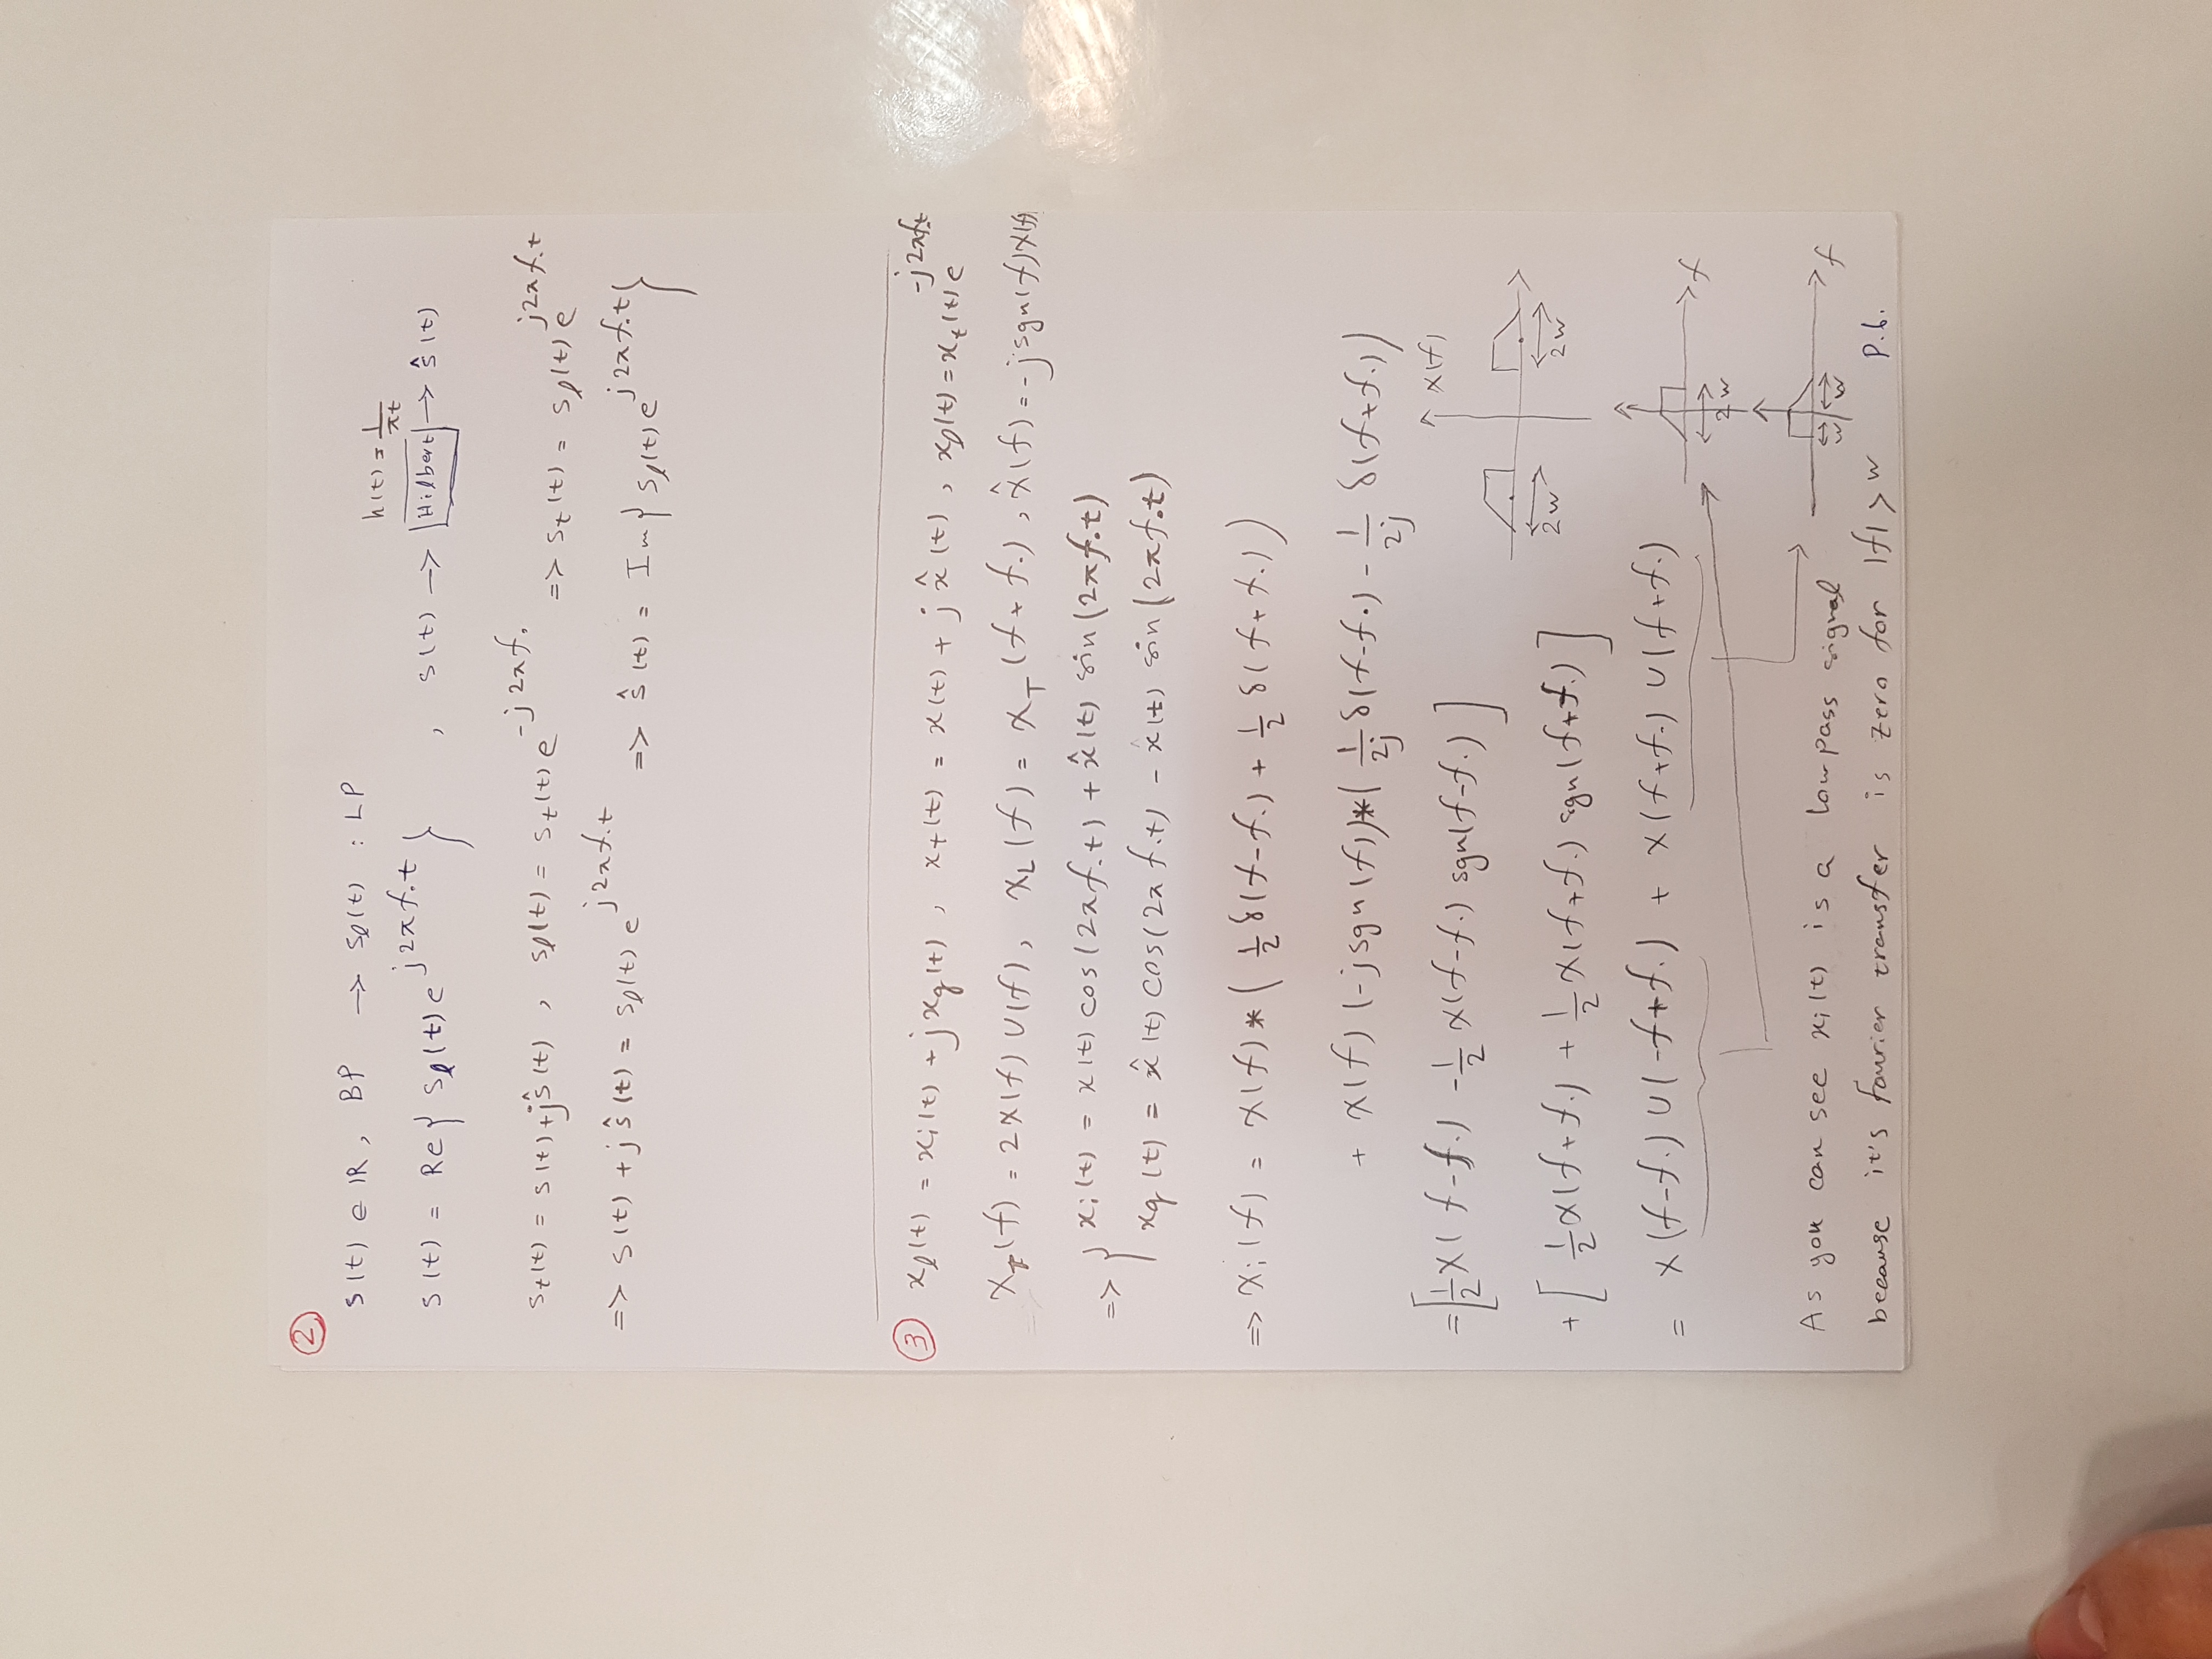 2
s(t) ∈ IR, BP → s_l(t) : LP
s(t) = Re{ s_l(t) e^{j2πf.t} } , s(t) → [Hilbert] → ŝ(t)
h(t) = 1/πt
s_+(t) = s(t)+jŝ(t) , s_l(t) = s_+(t) e^{-j2πf.} => s_+(t) = s_l(t) e^{j2πf.t}
=> s(t) + jŝ(t) = s_l(t) e^{j2πf.t} => ŝ(t) = Im{ s_l(t) e^{j2πf.t} }
3 x_l(t) = x_i(t) + j x_q(t) , x_+(t) = x(t) + j x̂(t) , x_l(t) = x_+(t) e^{-j2πf.t}
X_T(f) = 2X(f) U(f), X_L(f) = X_T(f+f.) , X̂(f) = -j sgn(f) X(f)
=> { x_i(t) = x(t) cos(2πf.t) + x̂(t) sin(2πf.t)
x_q(t) = x̂(t) cos(2πf.t) - x(t) sin(2πf.t)
=> X_i(f) = X(f) * ( 1/2 δ(f-f.) + 1/2 δ(f+f.) )
+ X(f) (-j sgn(f)) * ( 1/2j δ(f-f.) - 1/2j δ(f+f.) )
= [ 1/2 X(f-f.) - 1/2 X(f-f.) sgn(f-f.) ]
X(f)
2w 2w
+ [ 1/2 X(f+f.) + 1/2 X(f+f.) sgn(f+f.) ]
= X(f-f.) U(-f+f.) + X(f+f.) U(f+f.)
f
2w
As you can see x_i(t) is a lowpass signal
f
w w
because it's fourier transfer is zero for |f| > w P.6.